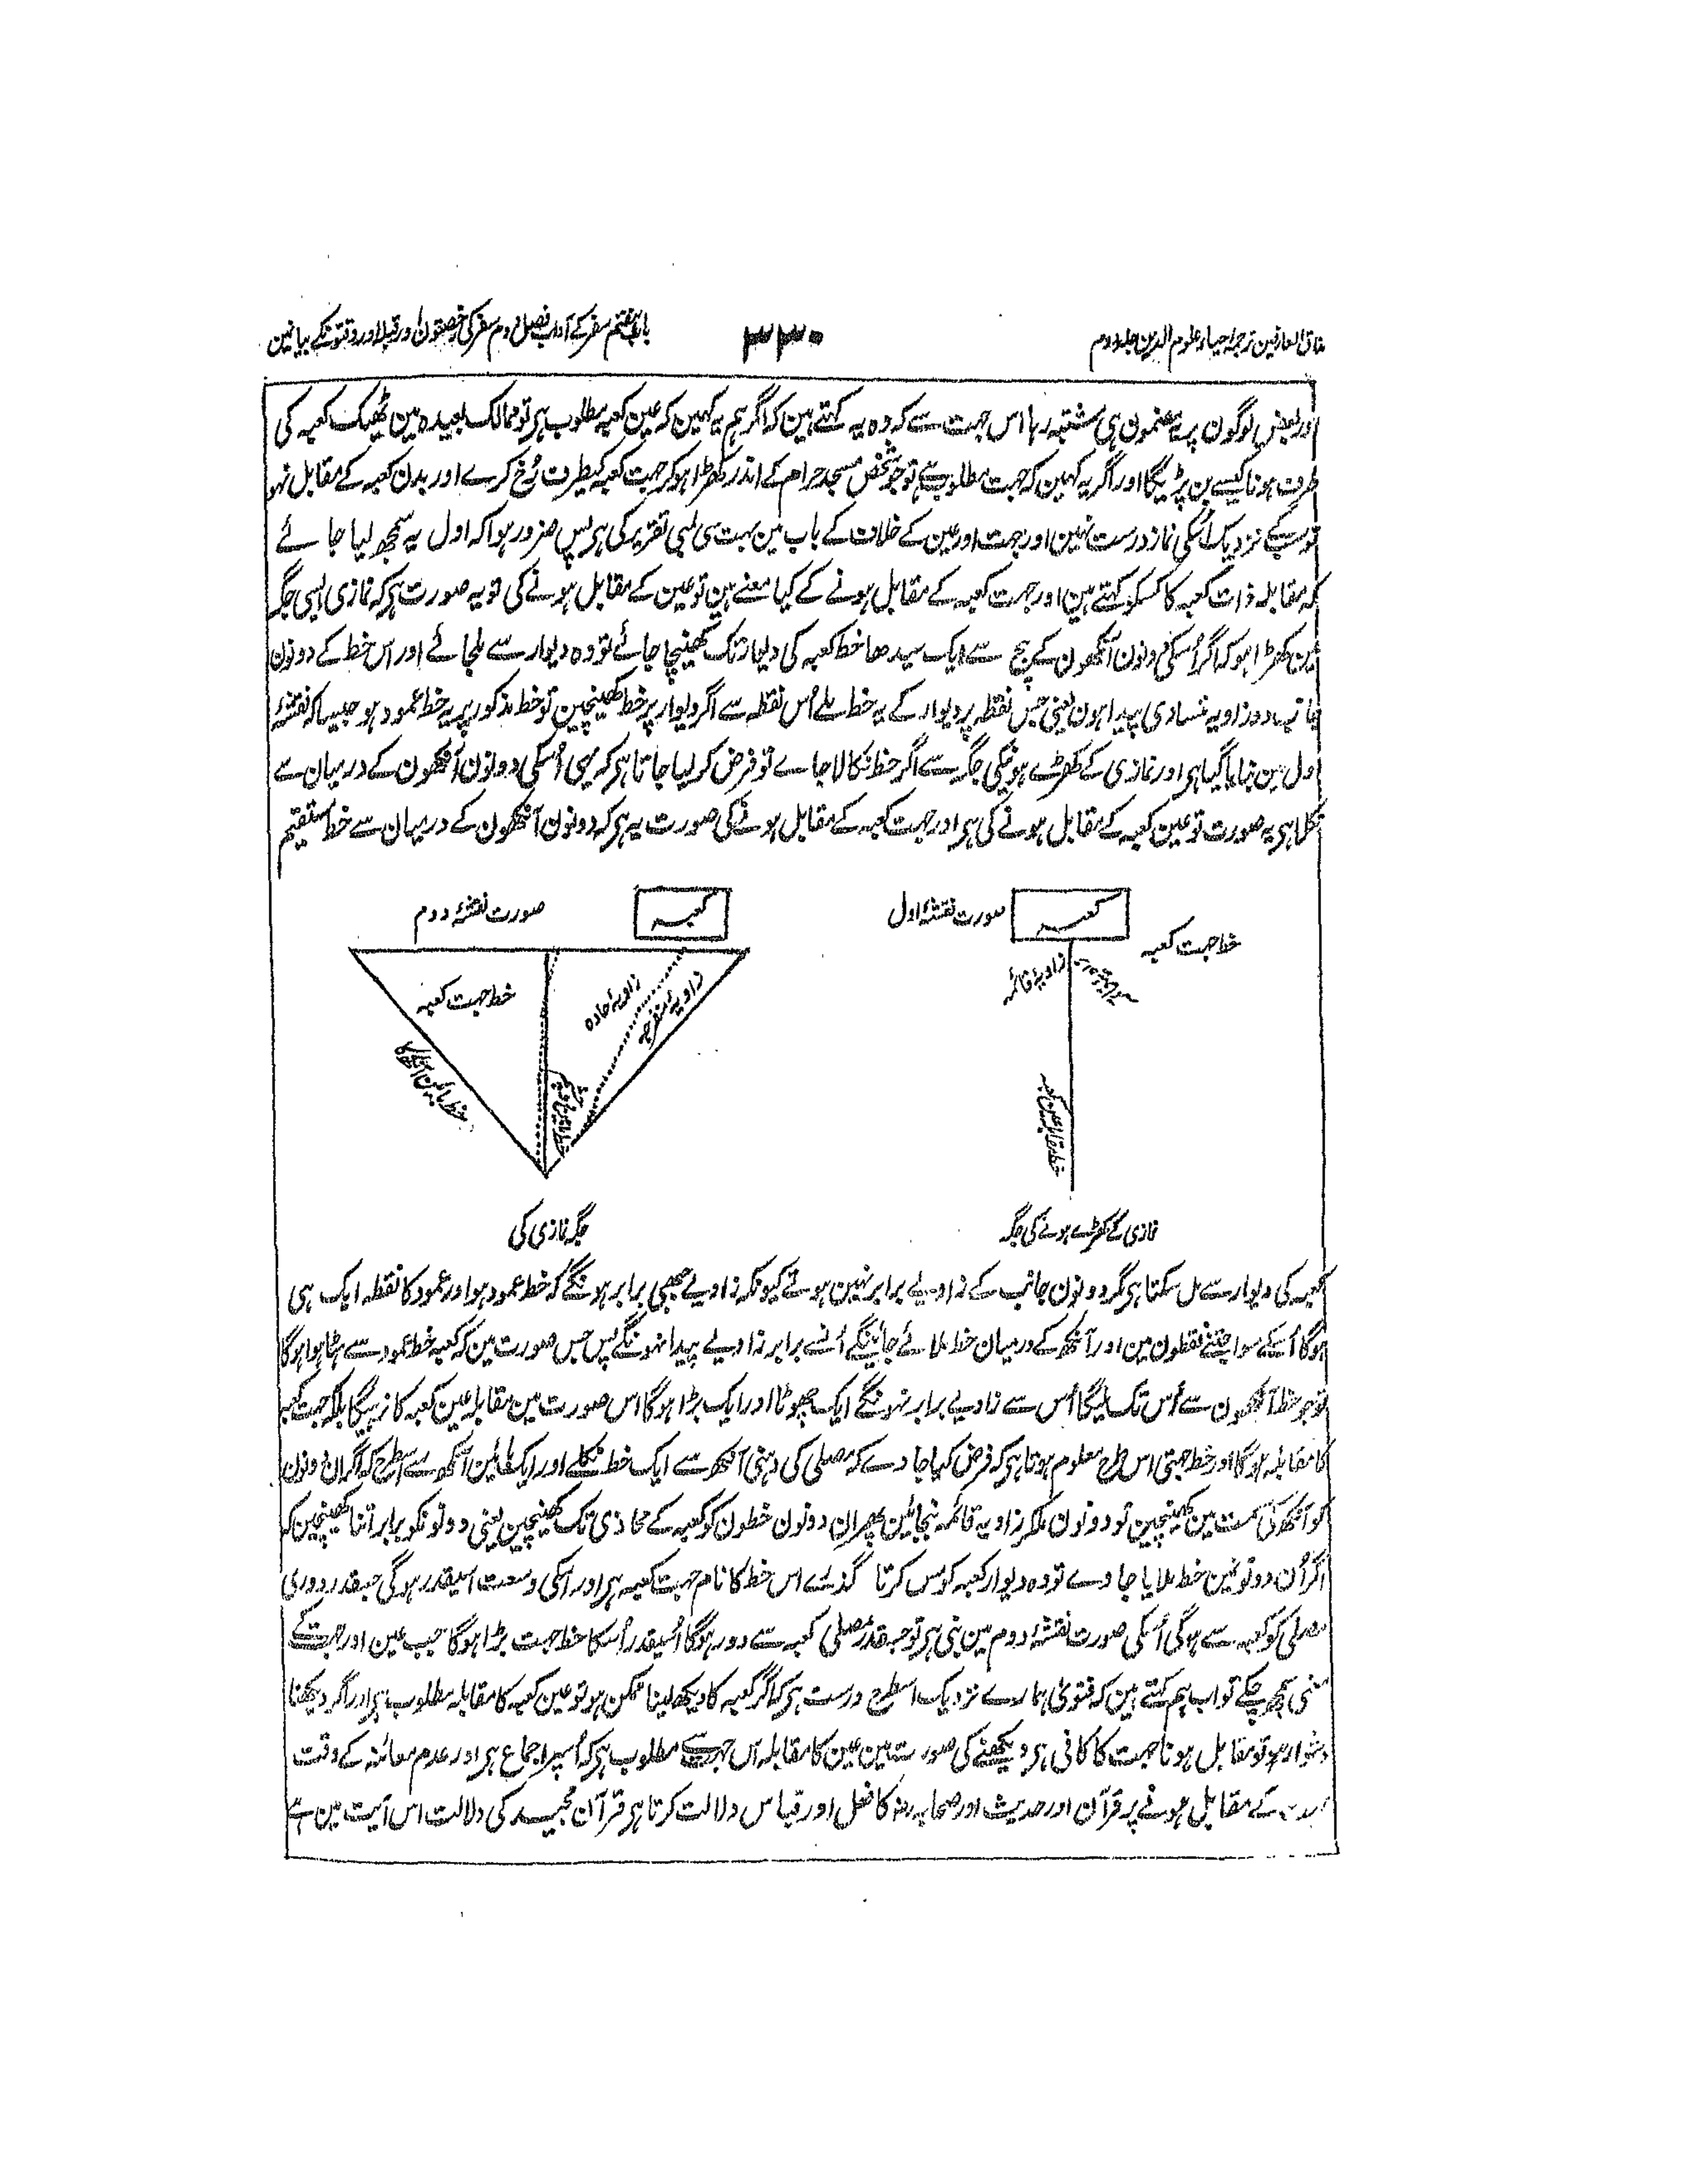 مذاق العارفین ترجمہ احیاء علوم الدین جلد دوم
۳۳۰
باب ہفتم سفر کے آداب فصل دوم سفر کی رخصتون اور قبلہ اور وقتونکے بیانمین
اور بعض لوگون پر یہ مضمون ہی مشتبہ رہا اس جہت سے کہ وہ یہ کہتے ہین کہ اگر ہم یہ کہین کہ عین کعبہ مطلوب ہی تو ممالک بعیدہ مین ٹھیک کعبہ کی
طرف ہونا کیسے بن پڑیگا اور اگر یہ کہین کہ جہت مطلوب ہے تو جو شخص مسجد حرام کے اندر کھڑا ہو کر جہت کعبہ کیطرف رخ کرے اور بدن کعبہ کے مقابل نہو
تو سبکے نزدیک اُسکی نماز درست نہین اور جہت اور عین کے خلاف کے باب مین بہت سی لمبی تقریر کی ہی پس ضرور ہوا کہ اول یہ سمجھ لیا جائے
کہ مقابلہ ذات کعبہ کا کسکو کہتے ہین اور جہت کعبہ کے مقابل ہونے کے کیا معنے ہین تو عین کے مقابل ہونے کی تو یہ صورت ہی کہ نمازی ایسی جگہ
مین کھڑا ہو کہ اگر اُسکی دونون آنکھون کے بیچ سے ایک سیدھا خط کعبہ کی دیوار تک کھینچا جائے تو وہ دیوار سے ملجائے اور اس خط کے دونون
جانب دو زاویہ متساوی پیدا ہون یعنی جس نقطہ پر دیوار کے یہ خط ملے اُس نقطہ سے اگر دیوار پر خط کھینچین تو خط مذکور پر یہ خط عمود ہو جیسا کہ نقشۂ
اول مین بنایا گیا ہی اور نمازی کے کھڑے ہونیکی جگہ سے اگر خط نکالا جاے تو فرض کر لیا جاتا ہی کہ یہی اُسکی دونون آنکھون کے درمیان سے
نکلا ہی یہ صورت تو عین کعبہ کے مقابل ہونے کی ہی اور جہت کعبہ کے مقابل ہونے کی صورت یہ ہی کہ دونون آنکھون کے درمیان سے خط مستقیم
صورت نقشۂ اول
کعبہ
خط جہت کعبہ
زاویۂ قائمہ
خط مقابلہ عین کعبہ
نمازی کے کھڑے ہونے کی جگہ
صورت نقشۂ دوم
کعبہ
خط جہت کعبہ
زاویۂ حادہ
زاویۂ منفرجہ
خط بائین آنکھ کا
جگہ نمازی کی
کعبہ کی دیوار سے مل سکتا ہی مگر دونون جانب کے زاویے برابر نہین ہوتے کیونکہ زاویے جبھی برابر ہونگے کہ خط عمود ہو اور عمود کا نقطہ ایک ہی
ہوگا اُسکے سوا جتنے نقطون مین اور آنکھ کے درمیان خط ملائے جائینگے اُنسے برابر زاویے پیدا نہونگے پس جس صورت مین کہ کعبہ خط عمود سے ہٹا ہوا ہوگا
تو جو خط آنکھون سے اُس تک ملیگا اُس سے زاویے برابر نہونگے ایک چھوٹا اور ایک بڑا ہوگا اس صورت مین مقابلہ عین کعبہ کا نرہیگا بلکہ جہت کعبہ
کا مقابلہ ہوگا اور خط جہتی اس طرح معلوم ہوتا ہی کہ فرض کیا جاوے کہ مصلی کی دہنی آنکھ سے ایک خط نکلے اور ایک بائین آنکھ سے اسطرح کہ اگر ان دونون
کو آنکھ کی سمت مین کھینچین تو دونون ملکر زاویہ قائمہ بنجائین پھر ان دونون خطون کو کعبہ کے محاذی تک کھینچین یعنی دونونکو برابر اتنا کھینچین کہ
اگر اُن دونونمین خط ملایا جاوے تو وہ دیوار کعبہ کو مس کرتا گذرے اس خط کا نام جہت کعبہ ہی اور اسکی وسعت اسیقدر ہوگی جسقدر دوری
مصلی کو کعبہ سے ہوگی اُسکی صورت نقشۂ دوم مین بنی ہی تو جسقدر مصلی کعبہ سے دور ہوگا اُسیقدر اُسکا خط جہت بڑا ہوگا جب عین اور جہت کے
معنی سمجھ چکے تو اب ہم کہتے ہین کہ فتویٰ ہمارے نزدیک اسطرح درست ہی کہ اگر کعبہ کا دیکھ لینا ممکن ہو تو عین کعبہ کا مقابلہ مطلوب ہی اور اگر دیکھنا
دشوار ہو تو مقابل ہونا جہت کا کافی ہی دیکھنے کی صورت مین عین کا مقابلہ اس جہت سے مطلوب ہی کہ اُسپر اجماع ہی اور عدم معائنہ کے وقت
کے مقابل ہونے پر قرآن اور حدیث اور صحابہ رضہ کا فعل اور قیاس دلالت کرتا ہی قرآن مجید کی دلالت اس آیت مین ہے